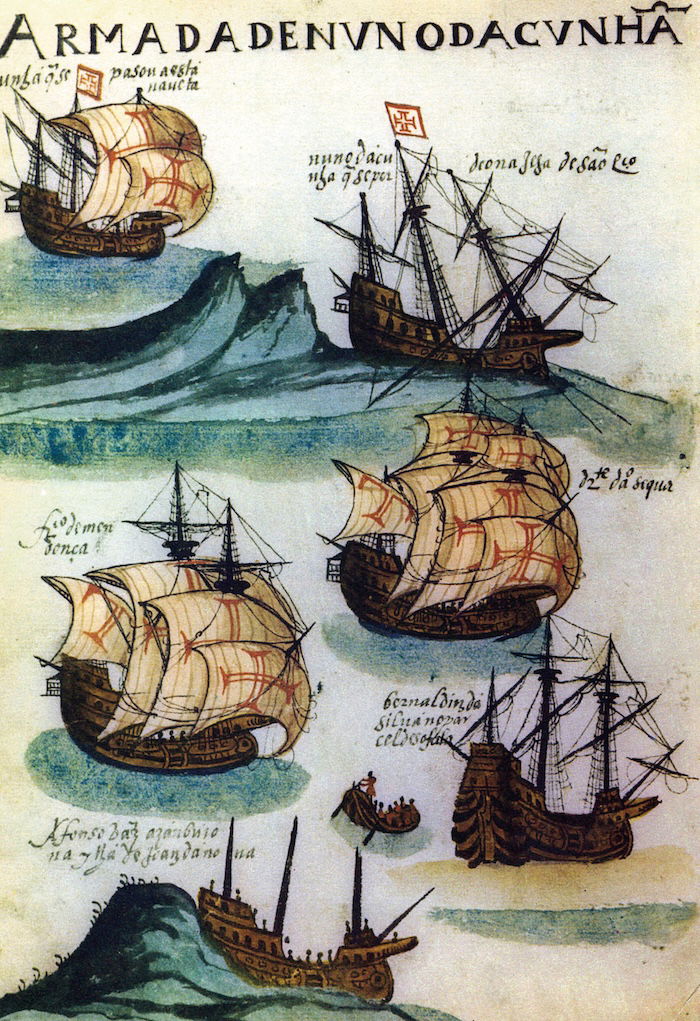 ARMADADENVNODACVNHÃ
unhá q̃ se pasou a esta
naueta
nuno dacu
nha q̃ se per
deo na Ilha de são Lço
dte daº siqua
fco de men
donça
bernaldin da
silua no par
cel de sofala
Afonso uaz azambujo
na ylha de Joan da no ua